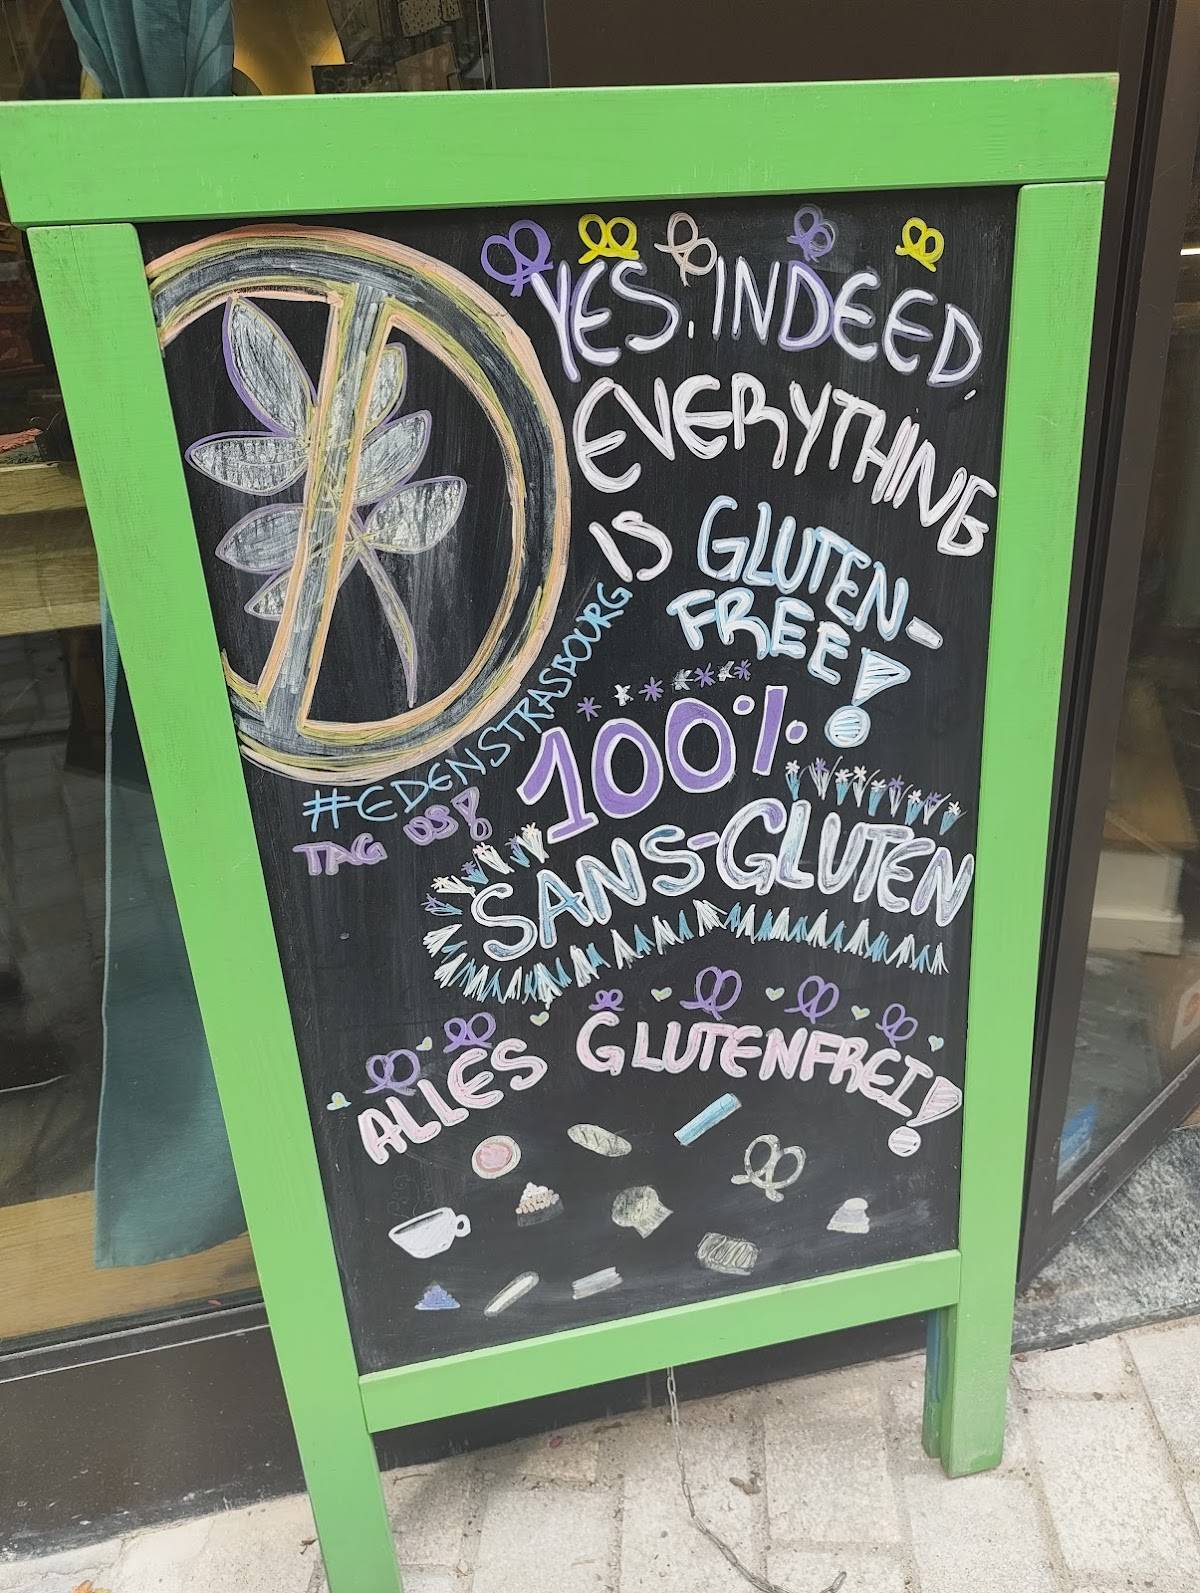 YES, INDEED,
EVERYTHING
IS GLUTEN-
FREE!
#EDENSTRASBOURG
TAG US!
100%
SANS-GLUTEN
ALLES GLUTENFREI!